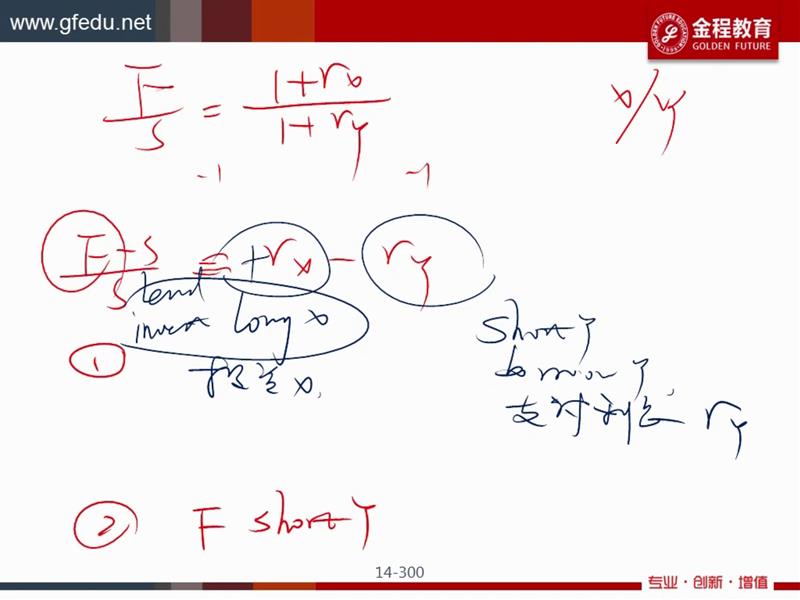 www.gfedu.net
金程教育
GOLDEN FUTURE
F/S = (1+rx)/(1+ry)
x/y
-1 -1
(F-S)/S = +rx - ry
lend
invest long x
① 投资 x
short y
borrow y
支付利息 ry
② F short y
14-300
专业·创新·增值